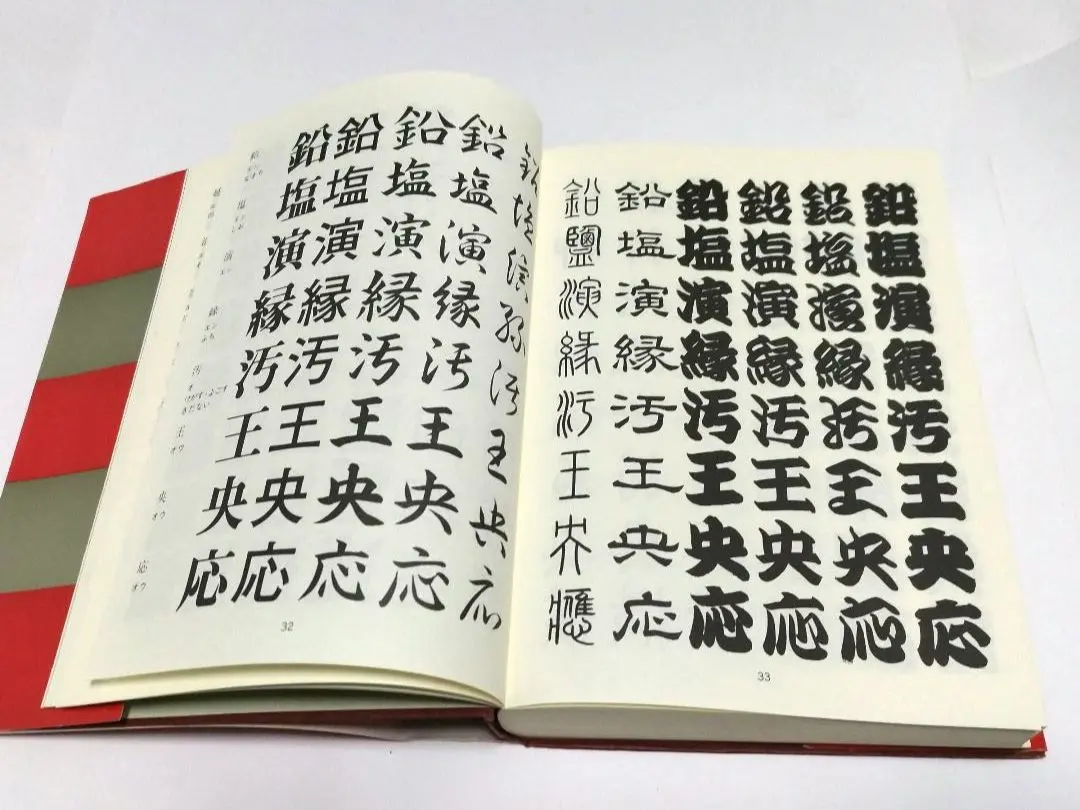 鉛 鉛 鉛 鉛 鉛 鉛
塩 エン 塩 塩 塩 塩 塩
演 エン 演 演 演 演 演
縁 エン ふち 縁 縁 縁 縁 縁
汚 オ 汚 汚 汚 汚 汚
王 オウ 王 王 王 王 王
央 オウ 央 央 央 央 央
応 オウ 応 応 応 応 応
32
鉛 鉛 鉛 鉛 鉛 鉛
鹽 塩 塩 塩 塩 塩
演 演 演 演 演 演
縁 縁 縁 縁 縁 縁
汚 汚 汚 汚 汚 汚
王 王 王 王 王 王
央 央 央 央 央 央
應 応 応 応 応 応
33